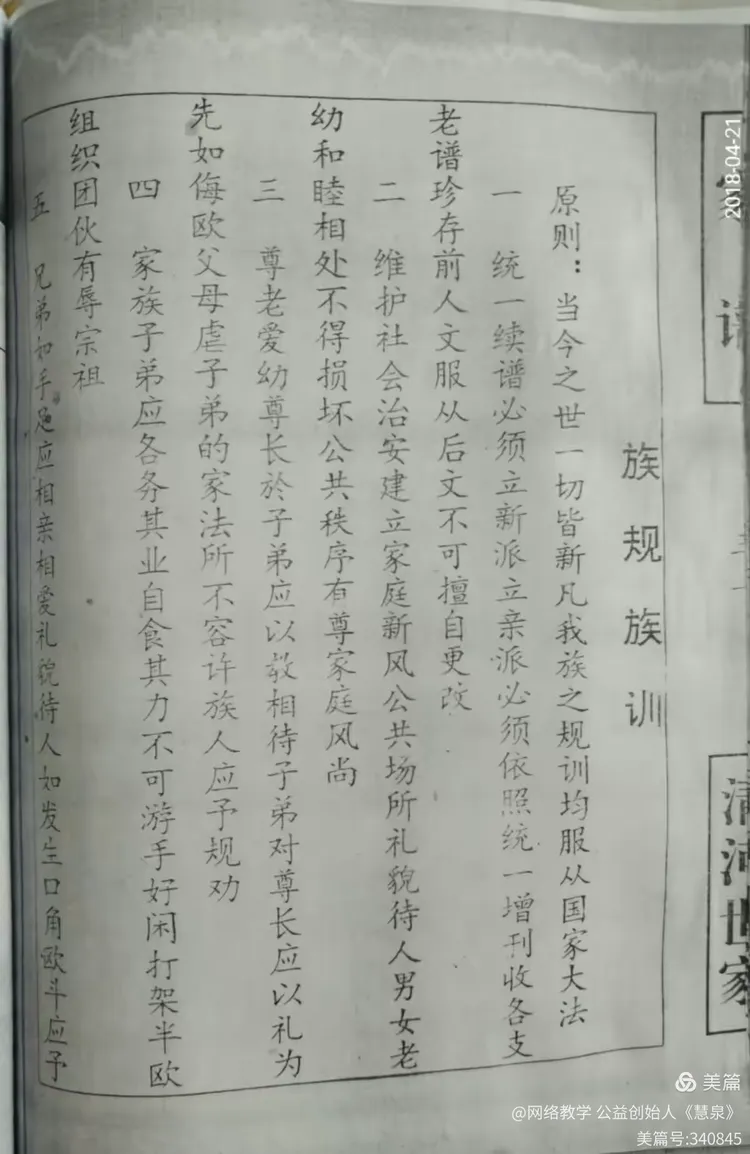 族规族训
原则：当今之世一切皆新凡我族之规训均服从国家大法
一 统一续谱必须立新派立亲派必须依照统一增刊收各支
老谱珍存前人文服从后文不可擅自更改
二 维护社会治安建立家庭新风公共场所礼貌待人男女老
幼和睦相处不得损坏公共秩序有尊家庭风尚
三 尊老爱幼尊长於子弟应以教相待子弟对尊长应以礼为
先如侮欧父母虐子弟的家法所不容许族人应予规劝
四 家族子弟应各务其业自食其力不可游手好闲打架半欧
组织团伙有辱宗祖
五 兄弟如手足应相亲相爱礼貌待人如发生口角欧斗应予
谱
清河世家
2018-04-21
美篇
@网络教学 公益创始人《慧泉》
美篇号:340845